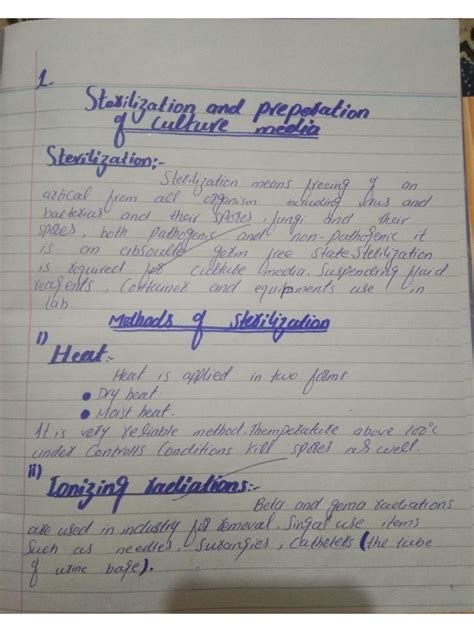 1.
Sterilization and preperation
of culture media
Sterilization:-
Sterlization means freeing of an
artical from all organism including virus and
bacterias and their spores, fungi and their
spores, both pathogenic and non-pathogenic it
is an absoulte germ free state. Sterlization
is required for culture media, Suspending fluid
reagents, Container and equipments use in
lab.
Methods of sterilization
i)
Heat:-
Heat is applied in two forms
• Dry heat
• Moist heat.
It is very reliable method. Themperature above 100°c
under Controlls Conditions Kill spores as well.
ii)
Ionizing radiations:-
Beta and gema radiations
are used in industry for removal, Singal use items
Such as needles, Surangies, Catheters (the tube
of urine bage).